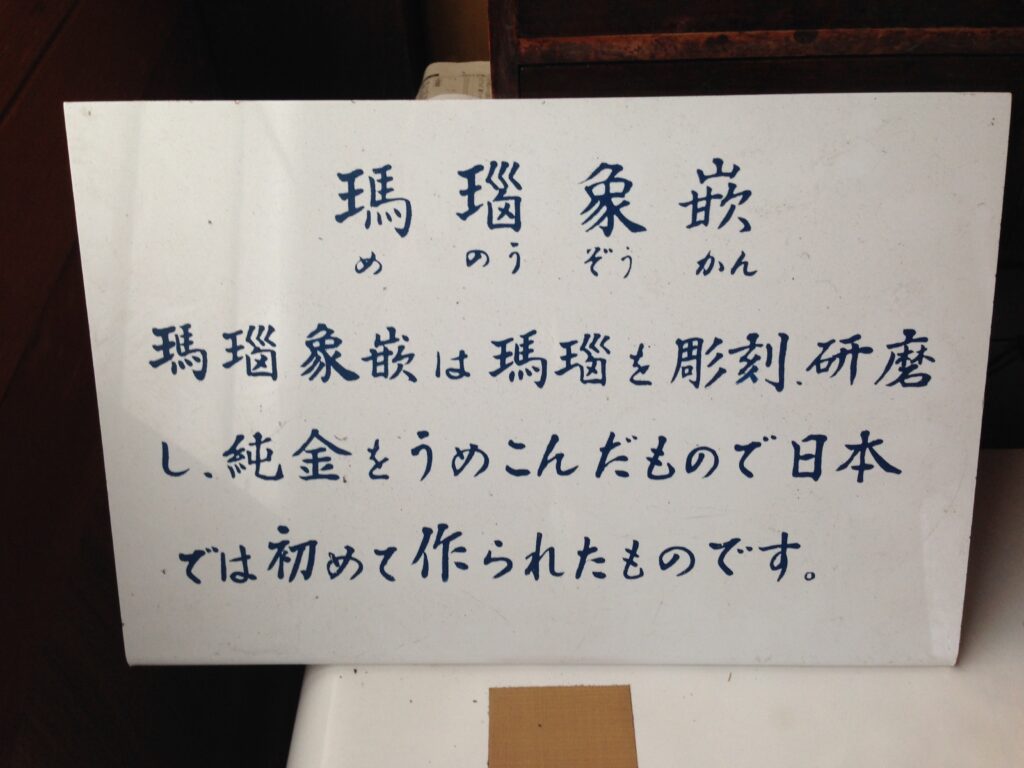 瑪瑙象嵌
めのうぞうかん
瑪瑙象嵌は瑪瑙を彫刻、研磨
し、純金をうめこんだもので日本
では初めて作られたものです。